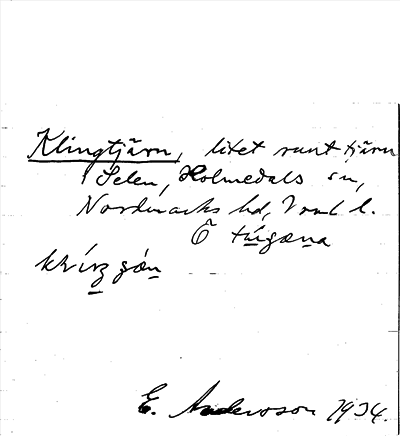 Klingtjärn, litet runt tjärn
i Selen, Holmedals sn,
Nordmarks hd, Vrml. l.
Ö
E. Andersson 1934.